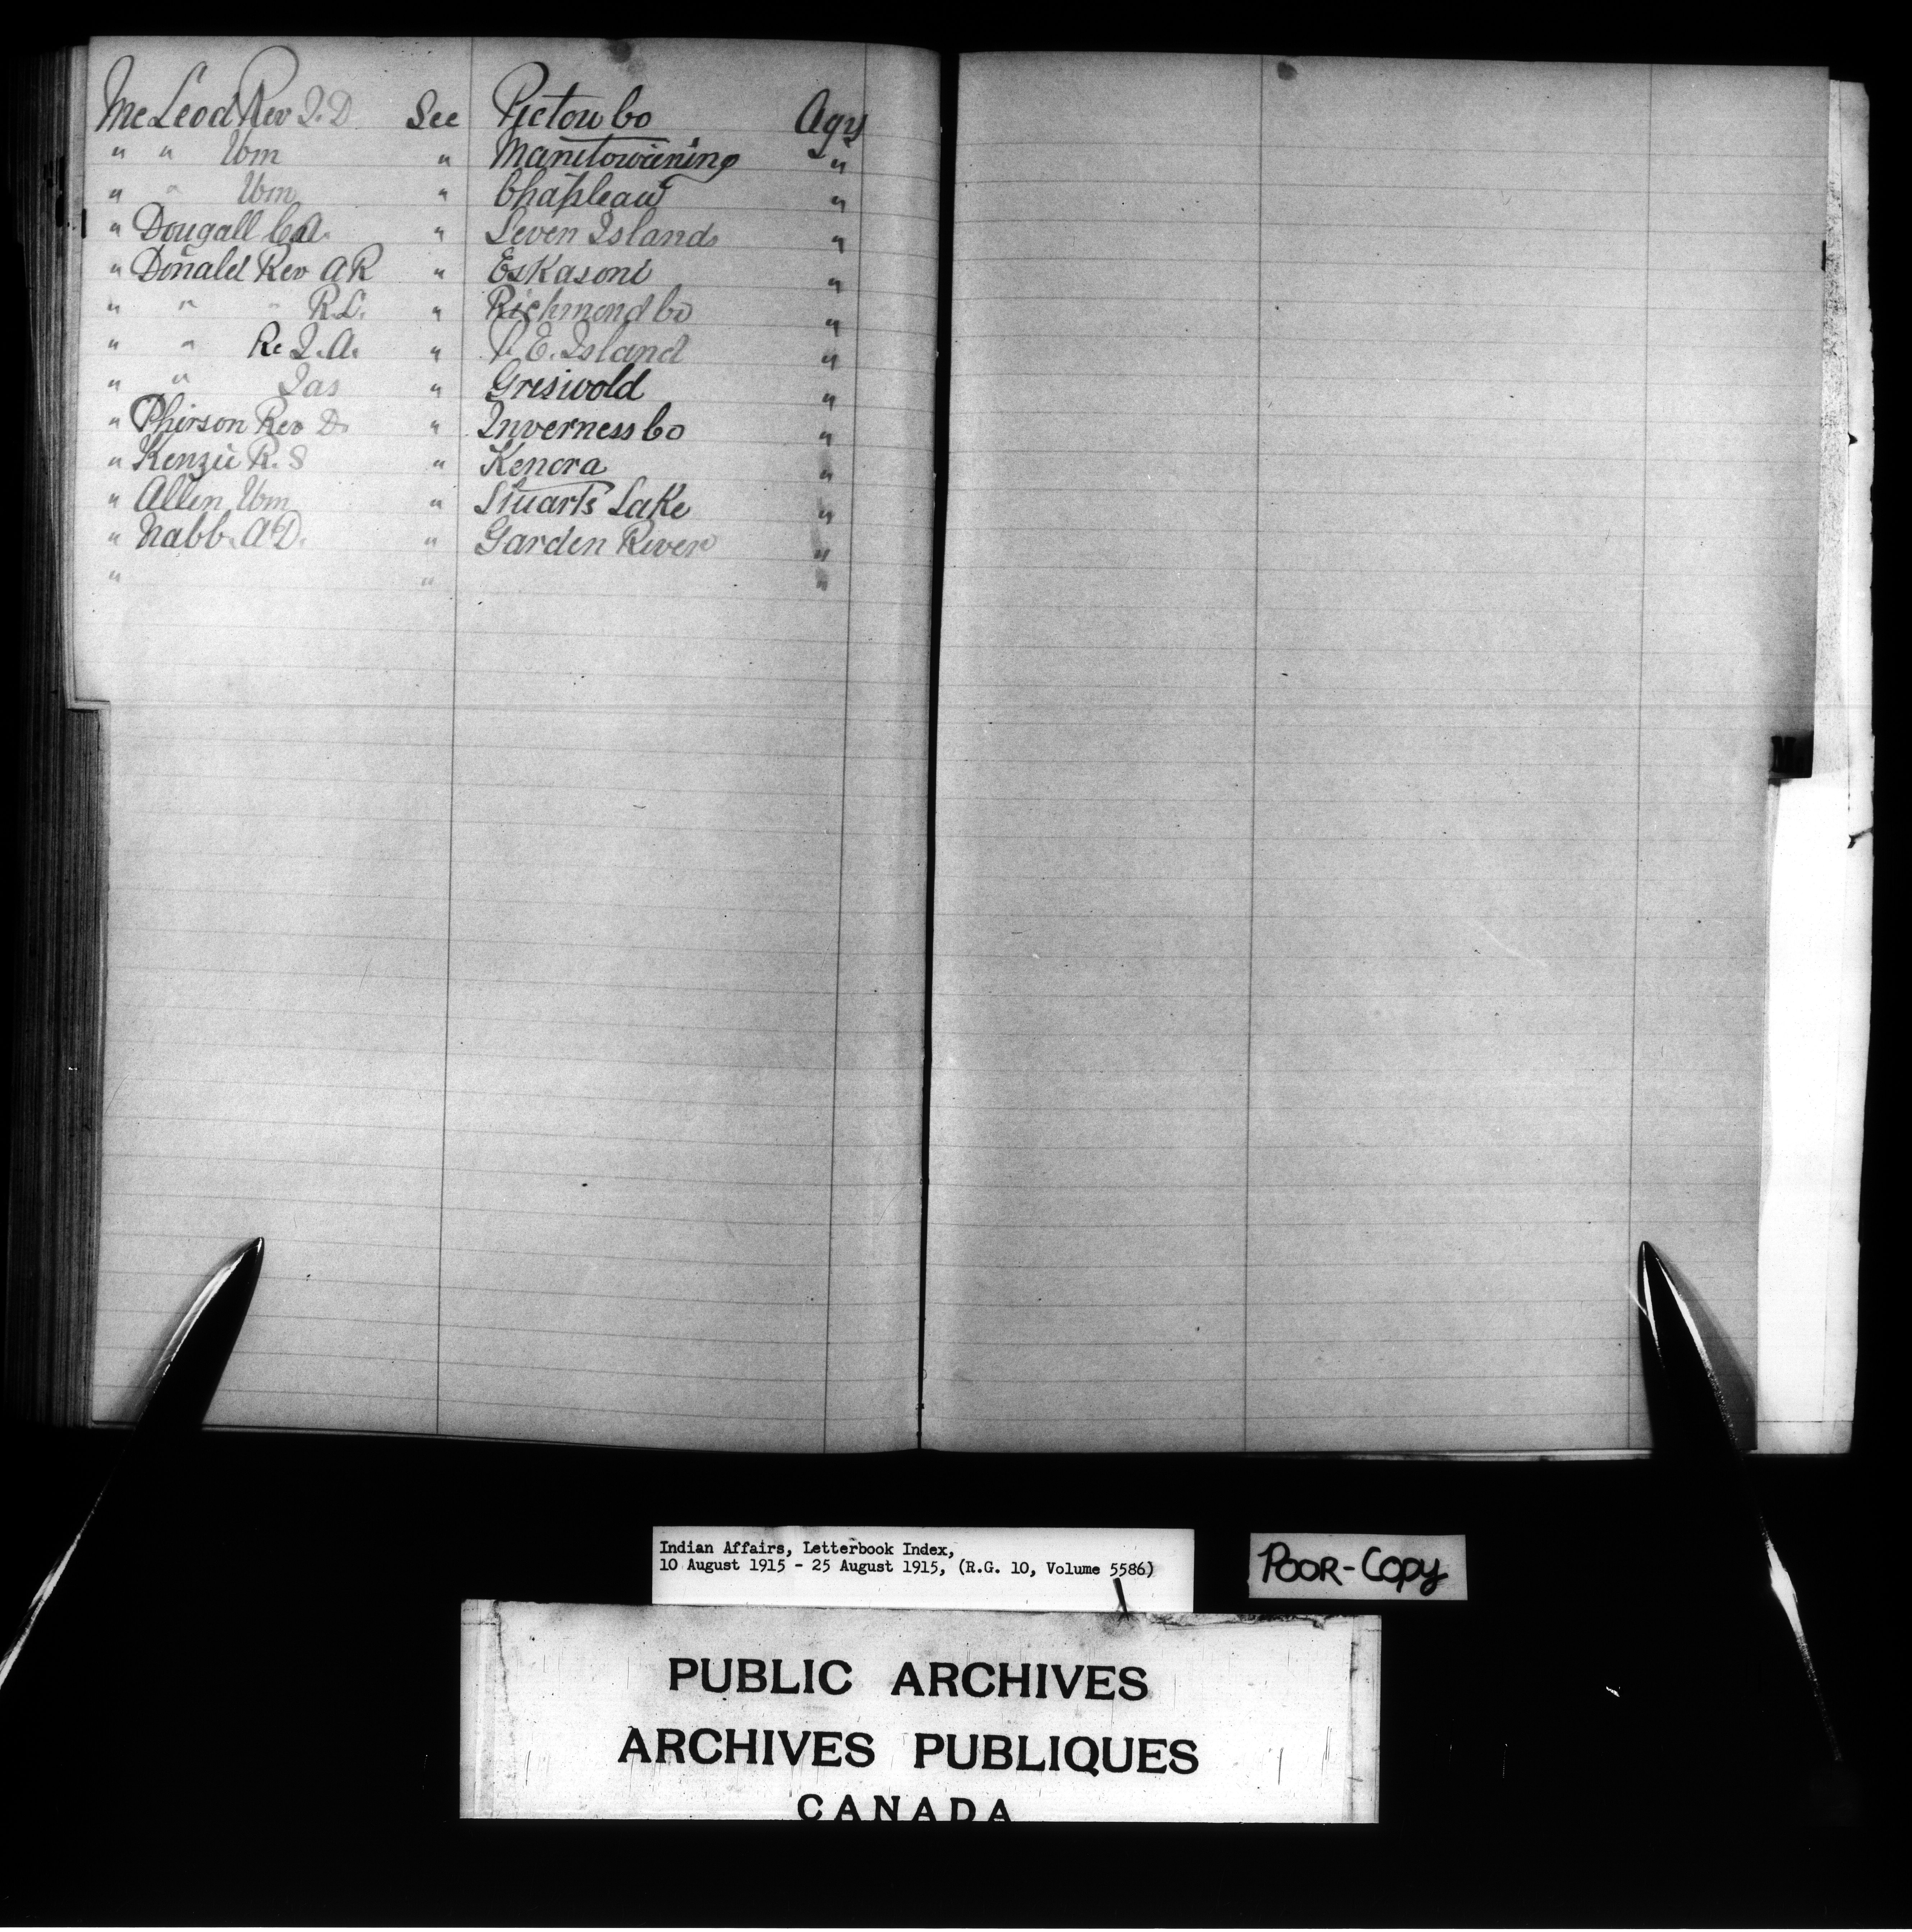 McLeod Rev J.D. See Pictou Co Agy
" " Wm " Manitowaning "
" " Wm " Chapleau "
" Dougall C.A. " Seven Islands "
" Donald Rev A R " Eskasoni "
" " " R.L. " Richmond Co "
" " Re J.A. " P. E. Island "
" " Jas " Griswold "
" Phirson Rev D. " Inverness Co "
" Kenzie R. S " Kenora "
" Allen Wm " Stuarts Lake "
" Nabb A D. " Garden River "
" " "
Indian Affairs, Letterbook Index,
10 August 1915 - 25 August 1915, (R.G. 10, Volume 5586)
POOR-COPY
PUBLIC ARCHIVES
ARCHIVES PUBLIQUES
CANADA